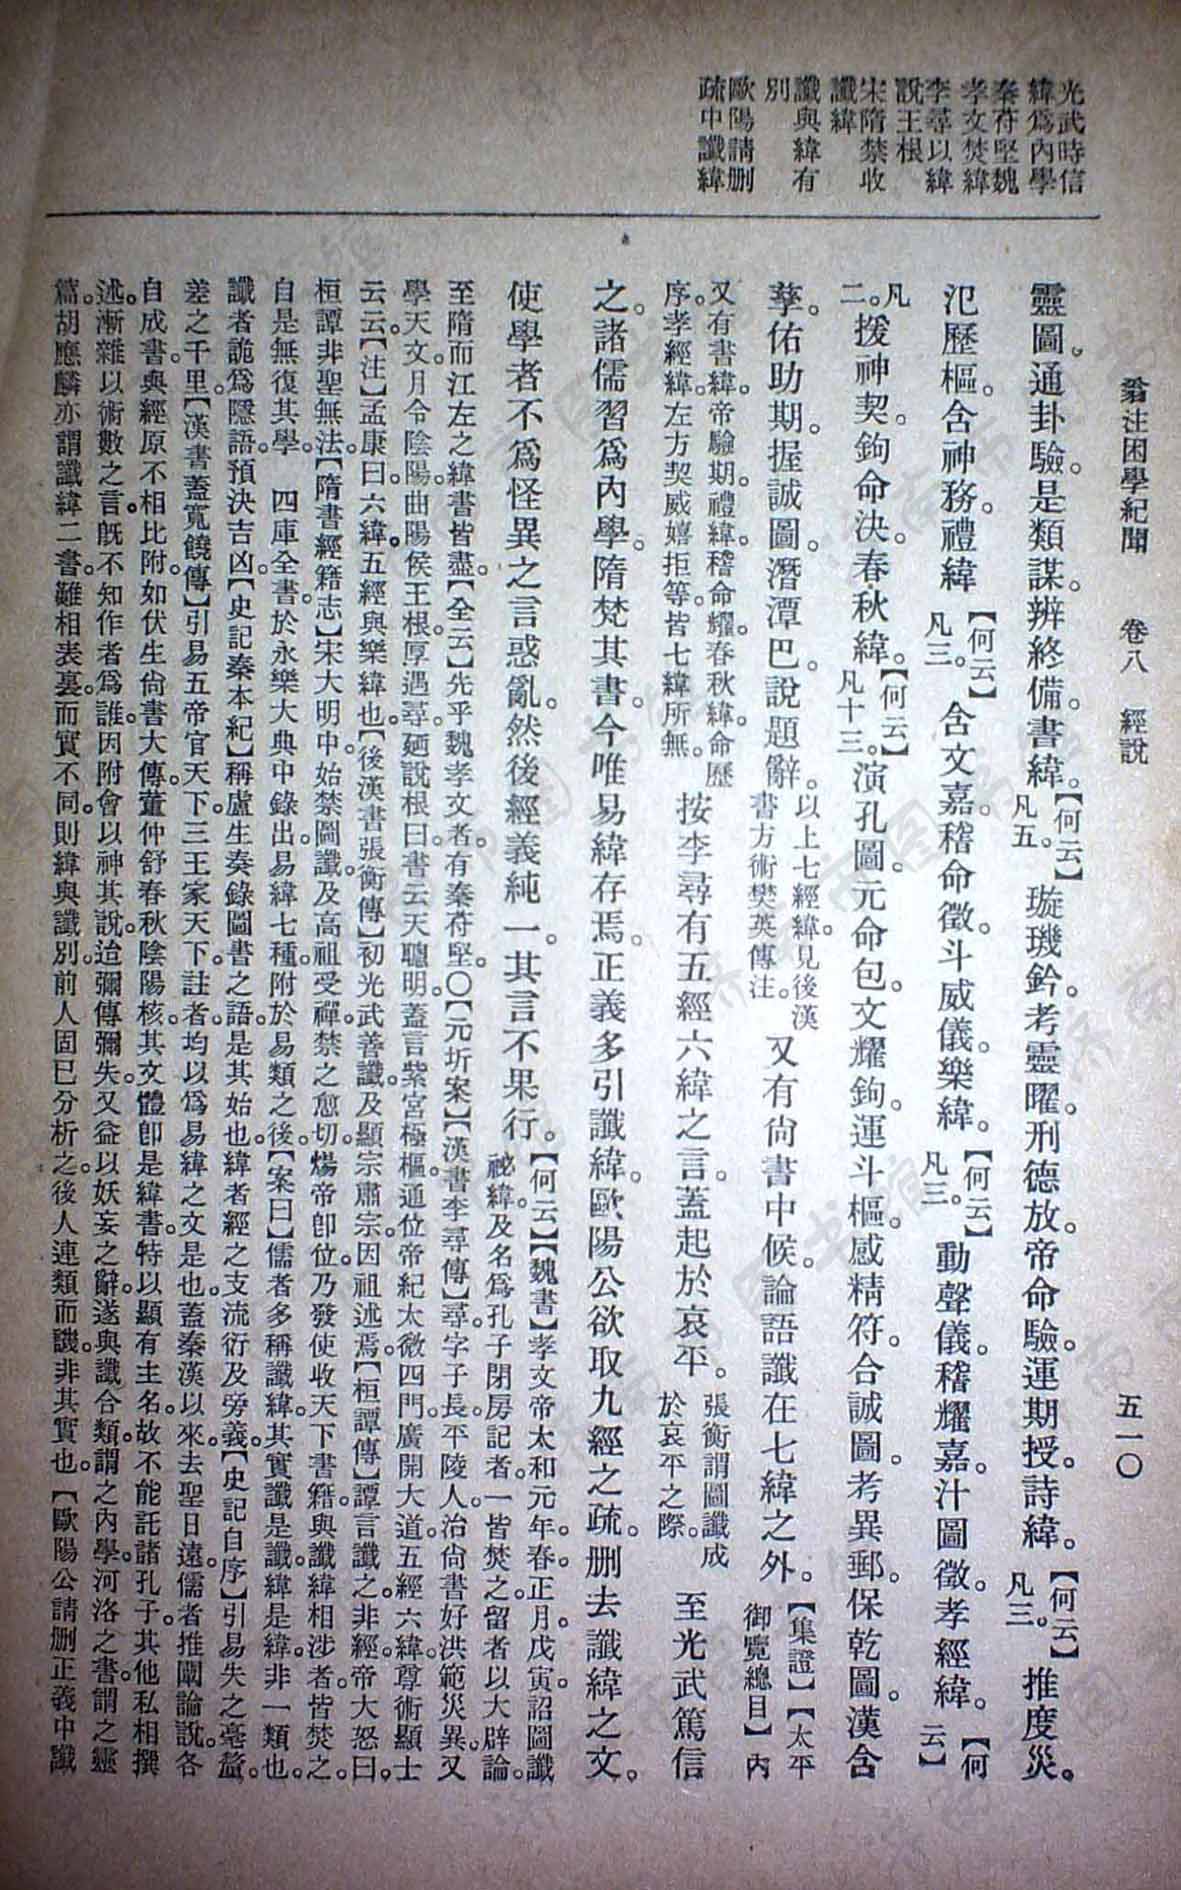 光武時信
緯爲內學
秦苻堅魏
孝文焚緯
李尋以緯
說王根
宋隋禁收
讖緯
讖與緯有
別
歐陽請刪
疏中讖緯
翁注困學紀聞 卷八 經說 五一〇
靈圖。通卦驗。是類謀。辨終備。書緯。【何云】凡五。璇璣鈐。考靈曜。刑德放。帝命驗。運期授。詩緯。【何云】凡三。推度災。
氾歷樞。含神務。禮緯【何云】凡三。含文嘉。稽命徵。斗威儀。樂緯。【何云】凡三。動聲儀。稽耀嘉。汁圖徵。孝經緯。【何云】
凡二。援神契。鉤命決。春秋緯。【何云】凡十三。演孔圖。元命包。文耀鉤。運斗樞。感精符。合誠圖。考異郵。保乾圖。漢含
孳。佑助期。握誠圖。潛潭巴。說題辭。以上七經緯。見後漢書方術樊英傳注。又有尚書中候。論語讖。在七緯之外。【集證】【太平御覽總目】內
又有書緯。帝驗期。禮緯。稽命耀。春秋緯。命歷序。孝經緯。左方契。威嬉拒等。皆七緯所無。按李尋有五經六緯之言。蓋起於哀平。張衡謂圖讖成於哀平之際。至光武篤信
之。諸儒習爲內學。隋焚其書。今唯易緯存焉。正義多引讖緯。歐陽公欲取九經之疏。刪去讖緯之文。
使學者不爲怪異之言惑亂。然後經義純一。其言不果行。【何云】【魏書】孝文帝太和元年。春正月。戊寅。詔圖讖祕緯。及名爲孔子閉房記者。一皆焚之。留者以大辟論。
至隋而江左之緯書皆盡。【全云】先乎魏孝文者。有秦苻堅。〇【元圻案】【漢書李尋傳】尋字子長。平陵人。治尚書。好洪範災異。又
學天文。月令陰陽。曲陽侯王根。厚遇尋。尋說根曰。書云天聰明。蓋言紫宮極樞。通位帝紀。太微四門。廣開大道。五經六緯。尊術顯士
云云。【注】孟康曰。六緯。五經與樂緯也。【後漢書張衡傳】初光武善讖。及顯宗肅宗。因祖述焉。【桓譚傳】譚言讖之非經。帝大怒曰。
桓譚非聖無法。【隋書經籍志】宋大明中。始禁圖讖。及高祖受禪。禁之愈切。煬帝卽位。乃發使收天下書籍。與讖緯相涉者。皆焚之。
自是無復其學。 四庫全書。於永樂大典中錄出易緯七種。附於易類之後。【案曰】儒者多稱讖緯。其實讖是讖。緯是緯。非一類也。
讖者詭爲隱語。預決吉凶。【史記秦本紀】稱盧生奏錄圖書之語。是其始也。緯者經之支流。衍及旁義。【史記自序】引易失之毫釐。
差之千里。【漢書蓋寬饒傳】引易五帝官天下。三王家天下。註者均以爲易緯之文是也。蓋秦漢以來。去聖日遠。儒者推闡論說。各
自成書。與經原不相比附。如伏生尚書大傳。董仲舒春秋陰陽。核其文體。卽是緯書。特以顯有主名。故不能託諸孔子。其他私相撰
述。漸雜以術數之言。旣不知作者爲誰。因附會以神其說。迨彌傳彌失。又益以妖妄之辭。遂與讖合類。謂之內學。河洛之書。謂之靈
篇。胡應麟亦謂讖緯二書。雖相表裏。而實不同。則緯與讖別。前人固已分析之。後人連類而譏。非其實也。【歐陽公請刪正義中讖